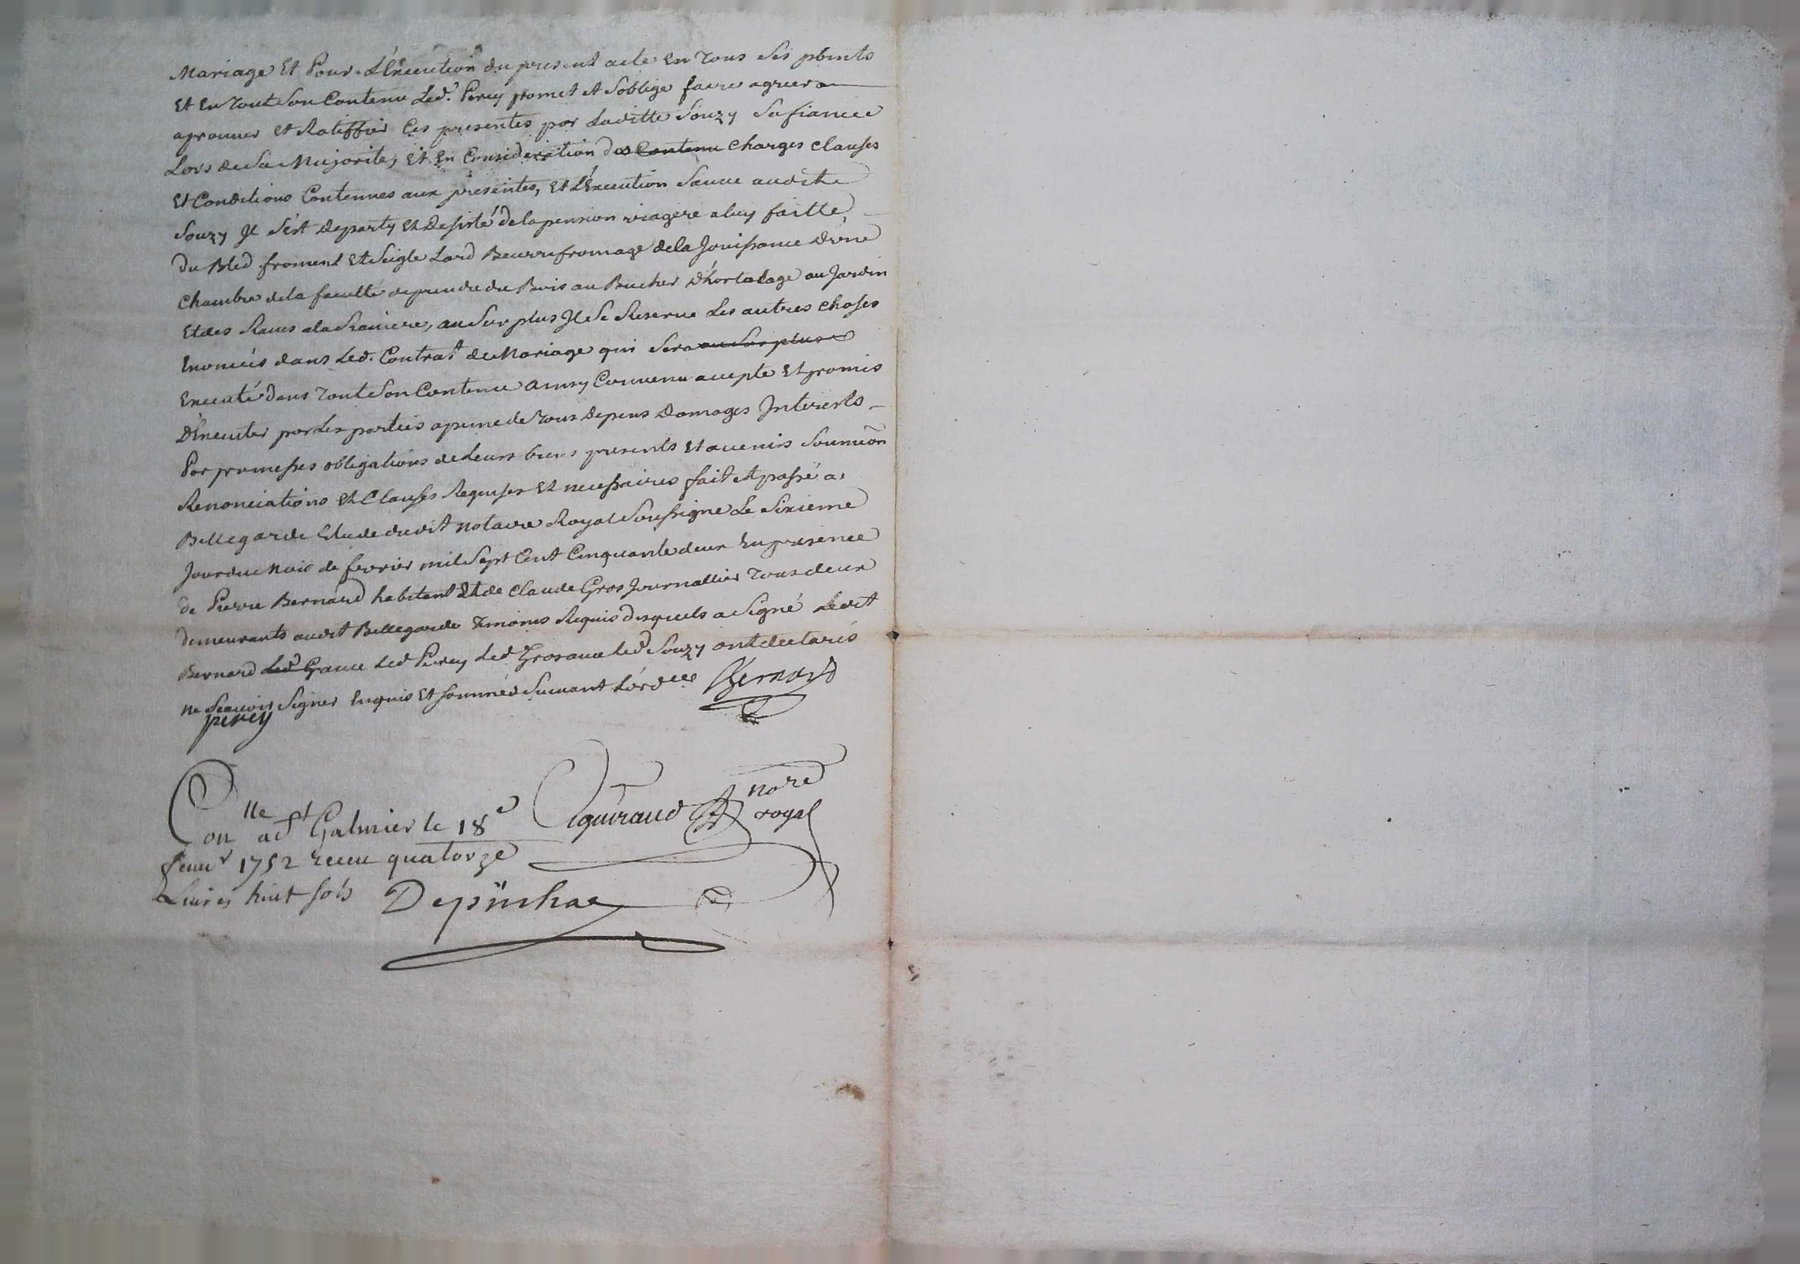 Mariage Et Pour L'Execution du present acte En Tous Ses points
Et En Tout Son Contenu Led. Perey promet et S'oblige faire agreer
aprouver et Ratiffier Ces presentes par Laditte Souzy Sa fiancée
Lors de Sa Majorité, Et En Consideration des Contenu Charges Clauses
Et Conditions Contenues aux presentes, Et L'Execution Sauve audit
Souzy Il S'est Departy Et Desisté de la pension viagere a luy faitte,
Du Bled froment Et Seigle Lard Beurre fromage de la Jouissance D'une
Chambre de la faculté de prendre du Bois au Bucher D'hortolage au Jardin
Et des Raves a la Raviere, au Surplus Il Se Reserve Les autres Choses
Enoncées dans Led. Contrat de Mariage qui Sera au Surplus
Executé dans Tout Son Contenu ainsy Convenu accepté Et promis
D'Executer par Les parties a peine de Tous Depens Domages Interests
Par promesses obligations de Leurs biens presents Et avenirs Soumion
Renonciations Et Clauses Requises Et necessaires fait et passé a
Bellegarde Etude dudit Notaire Royal Soussigné Le Sixieme
Jour du Mois de fevrier mil Sept Cent Cinquante deux En presence
de Pierre Bernard habitant Et de Claude Gros Journallier Tous deux
demeurants audit Bellegarde Temoins Requis desquels a Signé Ledit
Bernard Led Gr avec Led Perey Led Gros avec led Souzy ont declarés
Ne Scavoir Signer Enquis Et Sommés Suivant L'ord.ce Bernard
perey
Con.lle a St Galmier le 18e Eguiraud no.re royal
fevr 1752 receu quatorze
Livres huit sols Depinhac